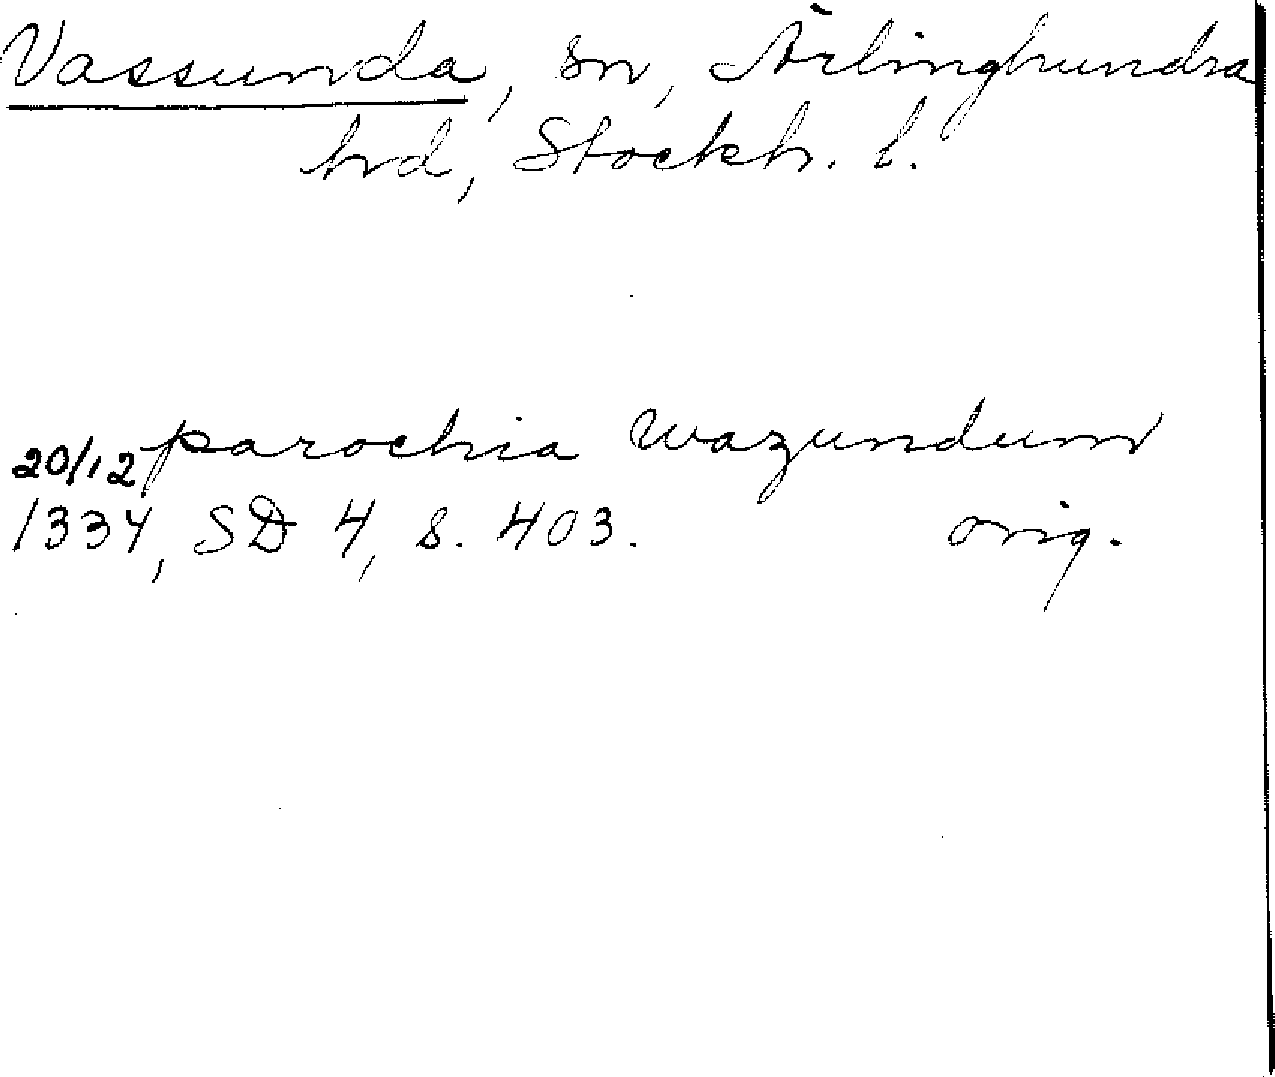 Vassunda, sn, Ärlinghundra
hd, Stockh. l.
parochia wazundum
20/12
1334, SD 4, s. 403. orig.